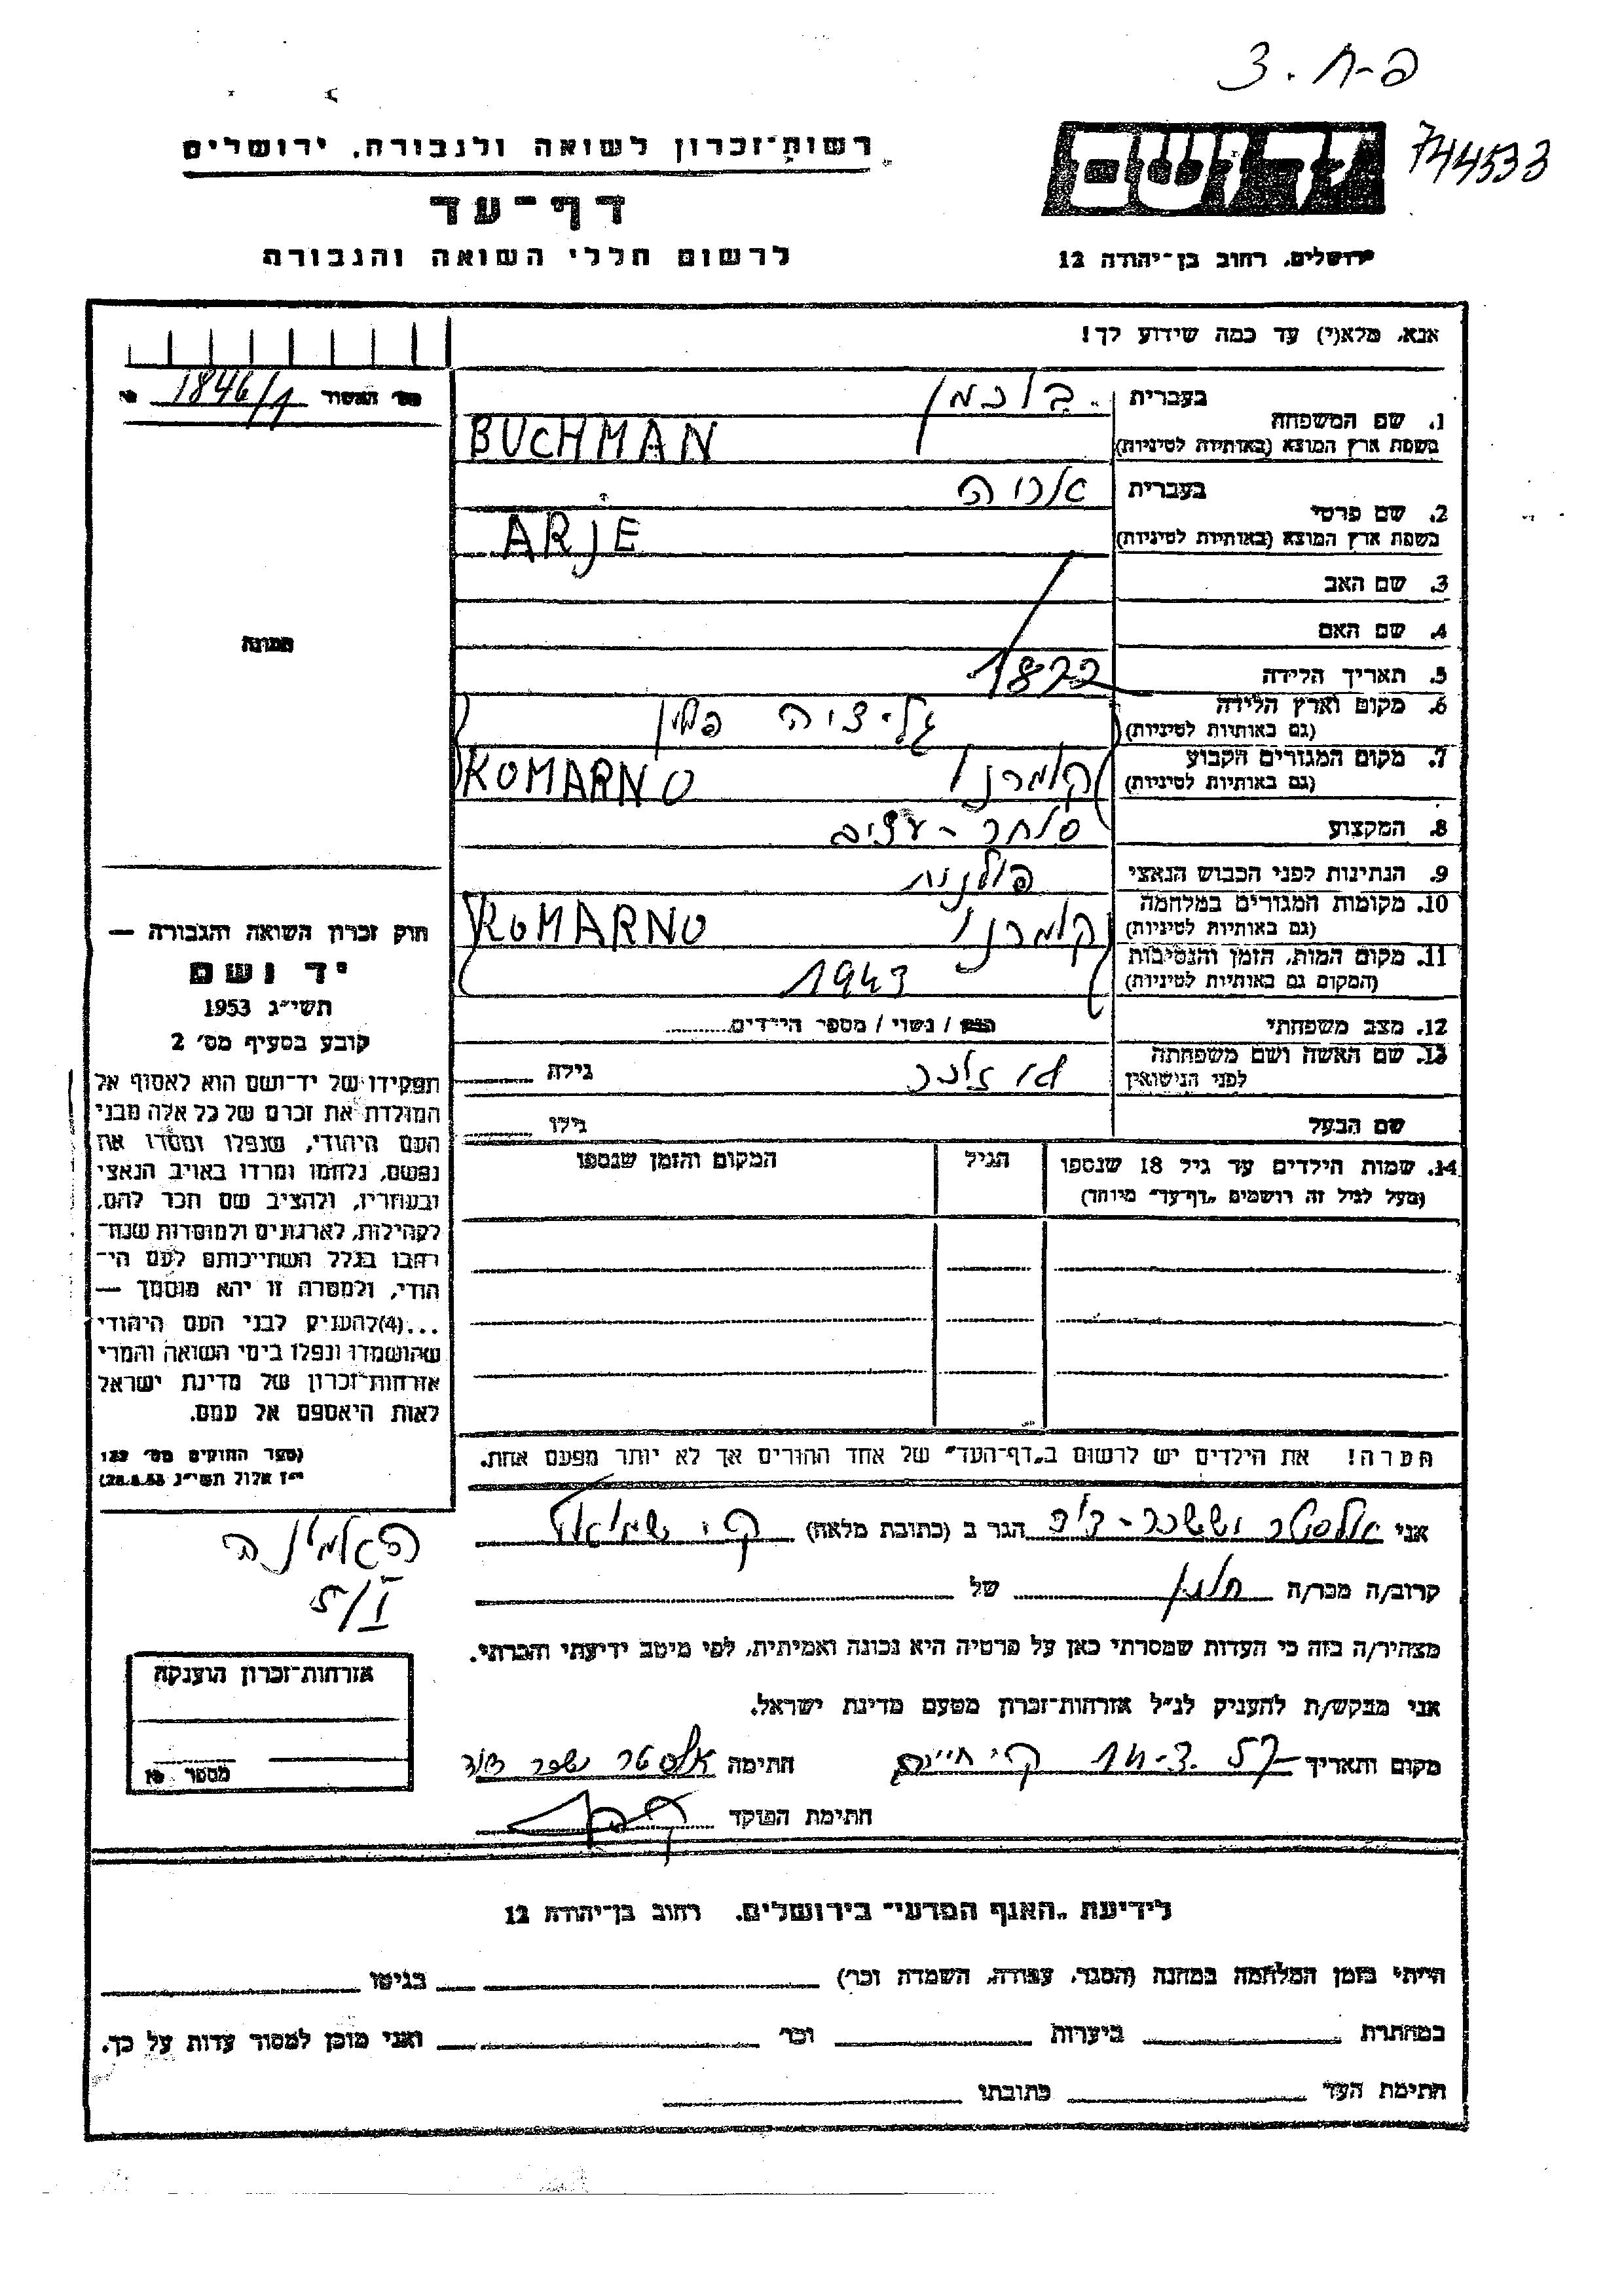 3. ח-פ
744533
רשות־זכרון לשואה ולגבורה, ירושלים
דף־עד
לרשום חללי השואה והגבורה
ירושלים, רחוב בן־יהודה 12
אנא, מלא(י) עד כמה שידוע לך!
1846/1
בעברית בוכמן
1. שם המשפחה
בשפת ארץ המוצא (באותיות לטיניות) BUCHMAN
בעברית אריה
2. שם פרטי
בשפת ארץ המוצא (באותיות לטיניות) ARJE
3. שם האב
4. שם האם
5. תאריך הלידה 1872
6. מקום וארץ הלידה גליציה פולין
(גם באותיות לטיניות)
7. מקום המגורים הקבוע קומרנו KOMARNO
(גם באותיות לטיניות)
8. המקצוע סוחר - עצים
9. הנתינות לפני הכבוש הנאצי פולנית
10. מקומות המגורים במלחמה קומרנו KOMARNO
(גם באותיות לטיניות)
11. מקום המות, הזמן והנסיבות 1943
(המקום גם באותיות לטיניות)
12. מצב משפחתי רווק / נשוי / מספר הילדים
13. שם האשה ושם משפחתה
לפני הנישואין
גילה
שם הבעל
גילו
14. שמות הילדים עד גיל 18 שנספו
(מעל לגיל זה רושמים „דף־עד" מיוחד)
הגיל
המקום והזמן שנספו
הערה! את הילדים יש לרשום ב„דף־העד" של אחד ההורים אך לא יותר מפעם אחת.
תמונה
חוק זכרון השואה והגבורה —
יד ושם
תשי״ג 1953
קובע בסעיף מס׳ 2
תפקידו של יד־ושם הוא לאסוף אל
המולדת את זכרם של כל אלה מבני
העם היהודי, שנפלו ומסרו את
נפשם, נלחמו ומרדו באויב הנאצי
ובעוזריו, ולהציב שם וזכר להם,
לקהילות, לארגונים ולמוסדות שנח־
רבו בגלל השתייכותם לעם הי־
הודי, ולמטרה זו יהא מוסמך —
...(4)להעניק לבני העם היהודי
שהושמדו ונפלו בימי השואה והמרי
אזרחות־זכרון של מדינת ישראל
לאות היאספם אל עמם.
(ספר החוקים מס׳ 132
י״ז אלול תשי״ג 28.8.53)
אני אלסטר יששכר-דוד הגר ב (כתובת מלאה) ק׳ שמואל
קרוב/ה מכר/ה חתן של
מצהיר/ה בזה כי העדות שמסרתי כאן על פרטיה היא נכונה ואמיתית, לפי מיטב ידיעתי והכרתי.
אני מבקש/ת להעניק לנ״ל אזרחות־זכרון מטעם מדינת ישראל.
מקום ותאריך ק׳ חיים 14.3.57 חתימה אלסטר יששכר דוד
חתימת הפוקד
5/I
אזרחות־זכרון הוענקה
מספר
לידיעת „האגף המדעי" בירושלים, רחוב בן־יהודה 12
הייתי בזמן המלחמה במחנה (הסגר, עבודה, השמדה וכו׳) בגיטו
במחתרת ביערות וכו׳ ואני מוכן למסור עדות על כך.
חתימת העד כתובתו